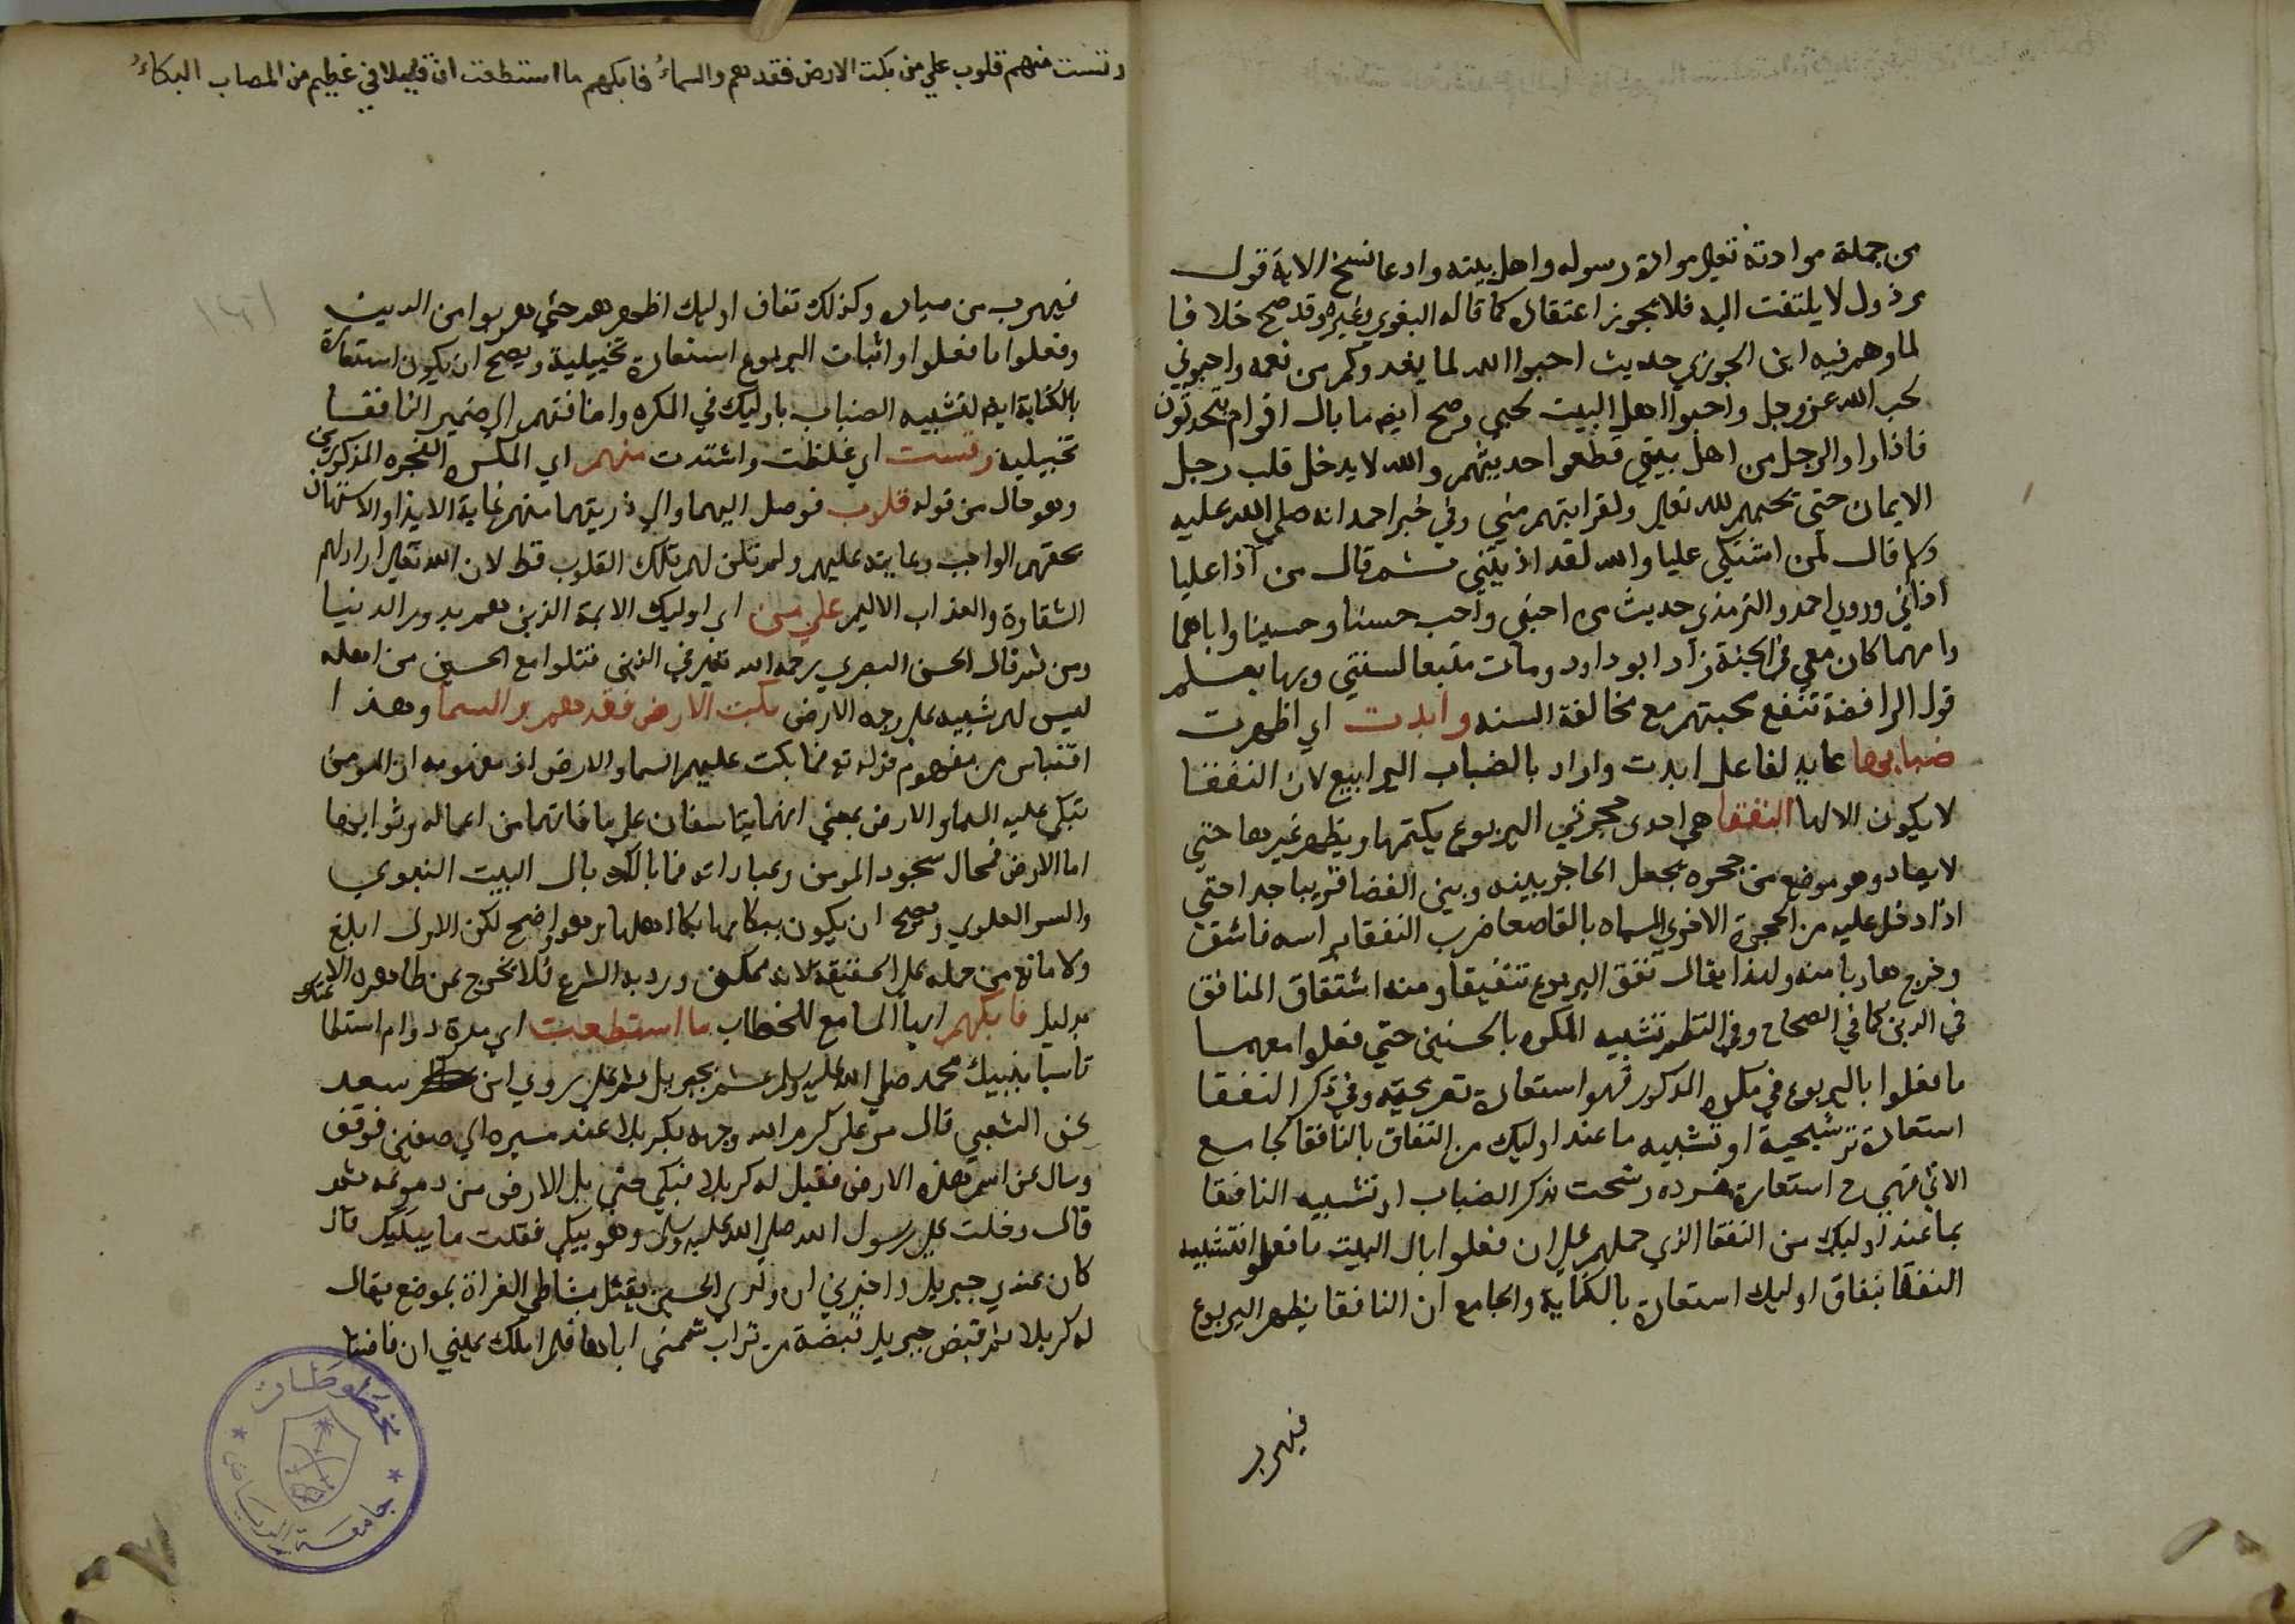 من جملة موادته تعالى موالاة رسوله واهل بيته وادعا نسخ الاية قول
مرذول لا يلتفت اليه فلا يجوز اعتقاده كما قاله البغوي وغيره وقد صح خلافا
لما وهم فيه ابن الجوزي حديث احبوا الله لما يغدوكم من نعمه واحبوني
لحب الله عز وجل واحبوا اهل البيت لحبي وصح ايضا ما بال اقوام يتحدثون
فاذا راوا الرجل من اهل بيتي قطعوا حديثهم والله لا يدخل قلب رجل
الايمان حتي يحبهم لله تعالى ولقرابتهم مني وفي خبر احمد انه صلي الله عليه
وسلم قال لمن اشتكي عليا والله لقد اذيتني ثم قال من آذا عليا
اذاني وروي احمد والترمذي حديث من احبني واحب حسنا وحسينا واباهما
وامهما كان معي في الجنة زاد ابو داود ومات متبعا لسنتي وبها يعلم
قول الرافضة تنفع محبتهم مع مخالفة السنه وابدت اي اظهرت
ضبابها عايد لفاعل ابدت واراد بالضباب اليرابيع لان النفقا
لا يكون الا لها النفقا هي احدى حجرتي اليربوع يكتمها ويظهر غيرها حتي
لا يصاد وهو موضع من جحره يجعل الحاجز بينه وبين الفضا قريبا جدا حتي
اذا دخل عليه من الحجرة الاخري المسماه بالقاصعا ضرب النفقا براسه فانشق
وخرج هاربا منه ولهذا يقال نفق اليربوع تنفيقا ومنه اشتقاق المنافق
في الدين كما في الصحاح وفي النظم تشبيه المكره بالحسنين حتي فعلوا معهما
ما فعلوا باليربوع في مكره المذكور فهو استعارة تصريحيه وفي ذكر النفقا
استعارة ترشيحية او تشبيه ما عند اوليك من النفاق بالنافقا بجامع
الاتي فهي ح استعارة مفرده رشحت بذكر الضباب او تشبيه النافقا
بما عند اوليك من النفقا الذي حملهم علي ان فعلوا بال البيت ما فعلوا فتشبيه
النفقا بنفاق اوليك استعارة بالكناية والجامع ان النافقا يظهر اليربوع
فيهرب
وقست منهم قلوب علي من بكت الارض فقدهم والسماءُ فابكهم ما استطعت ان قليلا في عظيم من المصاب البكاءُ
١٦١
فيهرب من صياده وكذلك نفاق اوليك اظهرهم حتي هربوا من الدين
وفعلوا ما فعلوا واثبات اليربوع استعارة تخييلية ويصح ان يكون استعارة
بالكناية ايضا لتشبيه الضباب باوليك في المكره واضافتهم الي ضمير النافقا
تخييلية وقست اي غلظت واشتدت منهم اي المكره الفجره المذكورين
وهو حال من قوله قلوب فوصل اليهما والي ذريتهما منهم غاية الايذا والاستهان
بحقهم الواجب رعايته عليهم ولم تلن لهم تلك القلوب قط لان الله تعالى اراد لهم
الشقاوة والعذاب الاليم علي من اي اوليك الاية الذين هم بدور الدنيا
ومن ثم قال الحسن البصري رحمه الله تعالى في الذين قتلوا مع الحسين من اهله
ليس لهم شبيه علي وجه الارض بكت الارض فقدهم والسما وهذا
اقتباس من مفهوم قوله تع فما بكت عليهم السما والارض اذ مفهومه ان المومن
تبكي عليه السما والارض بمعني انهما يتاسفان علي ما فاتهما من اعماله وثوابها
اما الارض فمحال سجود المومن وعباداته فما بالك بال البيت النبوي
والسر العلوي ويصح ان يكون ببكايها بكا اهلها وهو واضح لكن الاول ابلغ
ولا مانع من حمله علي الحقيقة لانه ممكن ورد به الشرع فلا نخرج عن ظاهره الا
بدليل فابكهم ايها السامع للخطاب ما استطعت اي مدة دوام استطا
تاسيا بنبيك محمد صلي الله عليه وسلم ثم بجبريل ثم بعلي روي ابن سعد
عن الشعبي قال مر علي كرم الله وجهه بكربلا عند مسيره الي صفين فوقف
وسال عن اسم هذه الارض فقيل له كربلا فبكي حتي بل الارض من دموعه ثم
قال دخلت علي رسول الله صلي الله عليه وسلم وهو يبكي فقلت ما يبكيك قال
كان عندي جبريل واخبرني ان ولدي الحسين يقتل بشاطي الفراة بموضع يقال
له كربلا ثم قبض جبريل قبضة من تراب شممني اياها فلم املك عيني ان فاضتا
مخطوطات
جامعة الرياض